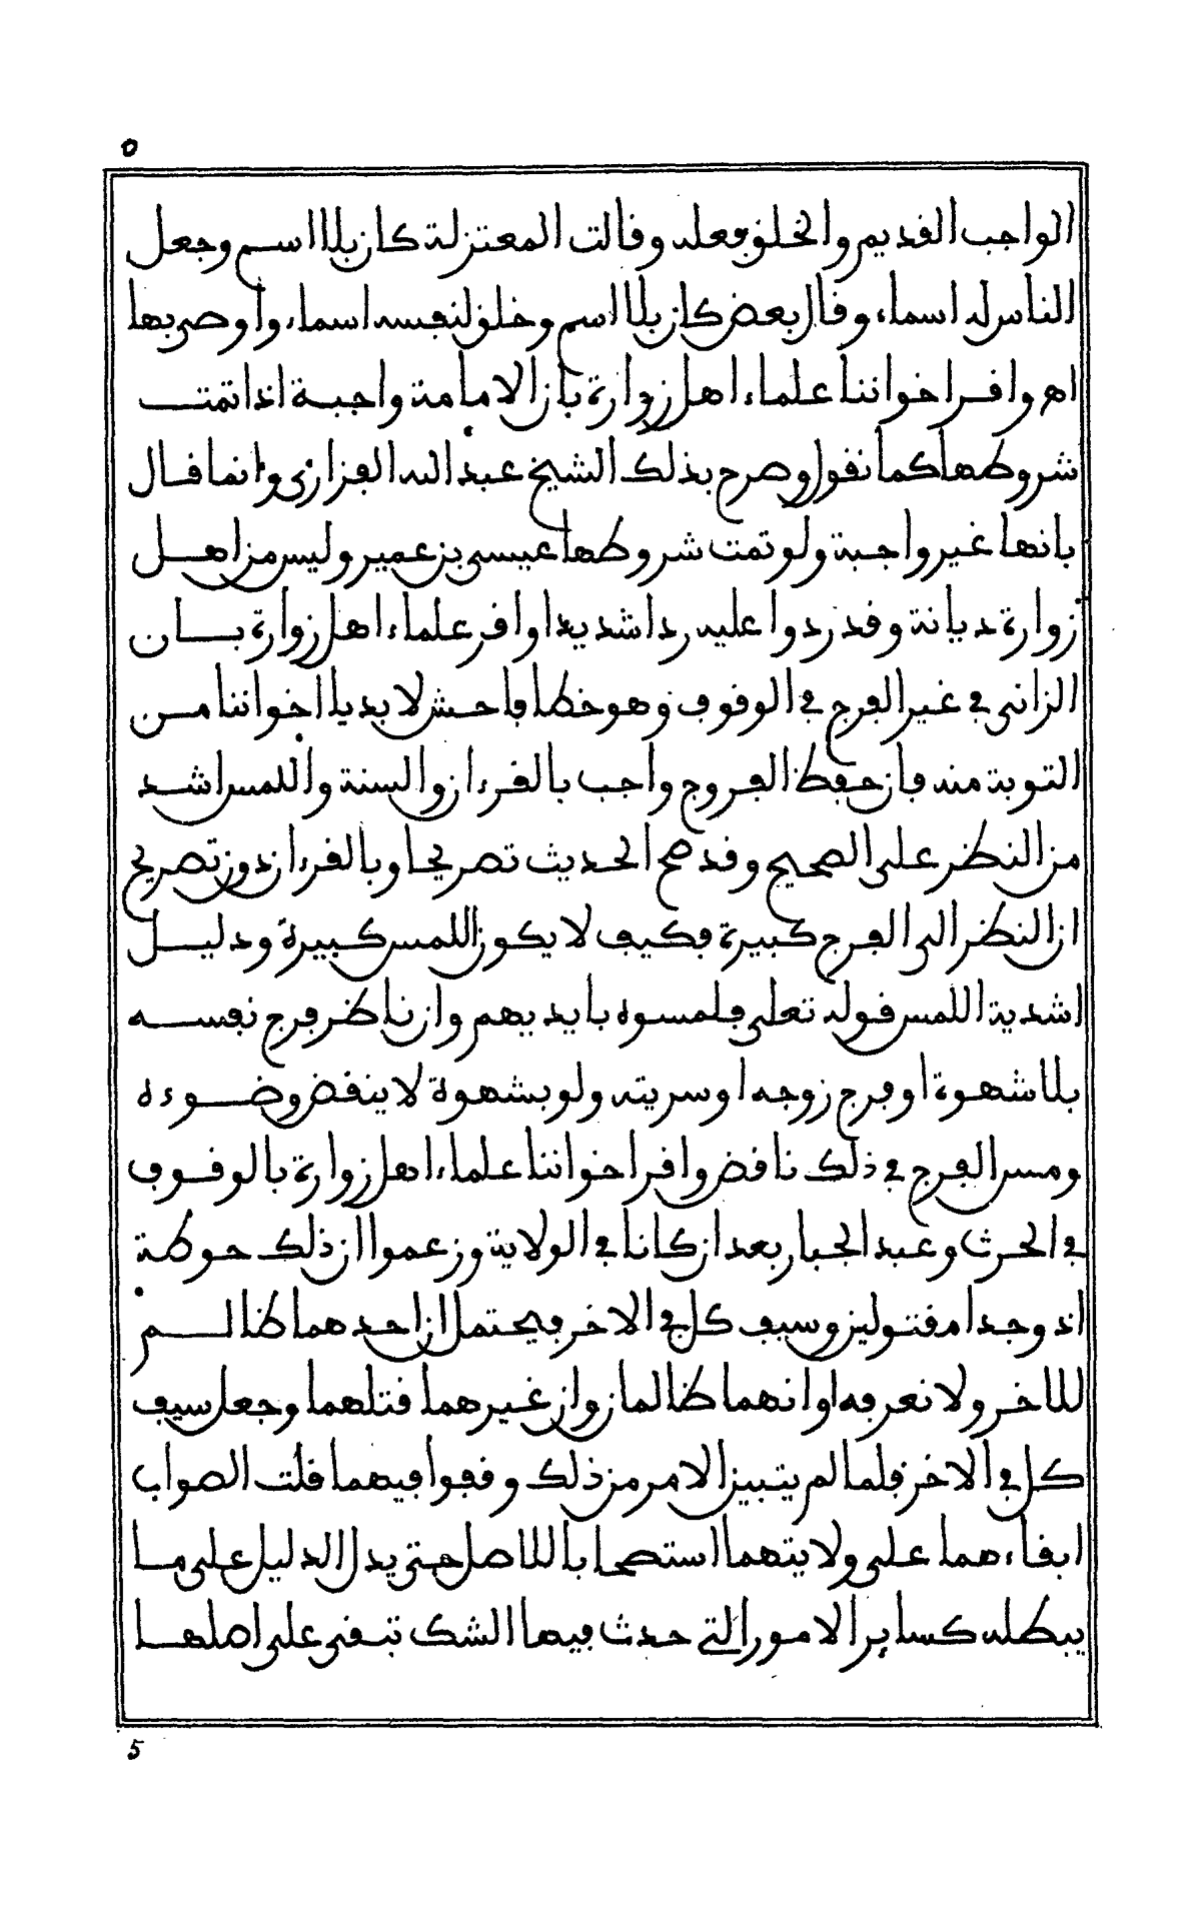 ٥
الواجب القديم والخلق فعله وقالت المعتزلة كان بلا اسم وجعل
الناس له اسماء وقال بعض كان بلا اسم وخلق لنفسه اسماء واوصى بها
اهـ واقر اخواننا علماء اهل زوارة بان الامامة واجبة اذا تمت
شروطها كما نقول وصرح بذلك الشيخ عبد الله الفزاري وانما قال
بانها غير واجبة ولو تمت شروطها عيسى بن عمير وليس من اهل
زوارة ديانة وقد ردوا عليه ردا شديدا واقر علماء اهل زوارة بان
الزاني في غير الفرج في الوقوف وهو خطا فاحش لا بد يا اخواننا من
التوبة منه فان حفظ الفروج واجب بالقرءان والسنة واللمس اشد
من النظر على الصحيح وقد صح الحديث تصريحا وبالقرءان دون تصريح
ان النظر الى الفرج كبيرة فكيف لا يكون اللمس كبيرة ودليل
اشدية اللمس قوله تعلى فلمسوه بايديهم وان ناظر فرج نفسه
بلا شهوة او فرج زوجه او سريته ولو بشهوة لا ينقض وضوءه
ومس الفرج في ذلك ناقض واقر اخواننا علماء اهل زوارة بالوقوف
في الحرث وعبد الجبار بعد ان كانا في الولاية وزعموا ان ذلك حوطة
اذ وجدا مقتولين وسيف كل في الاخر فيحتمل ان احدهما ظالم
للاخر ولا نعرفه او انهما ظالمان وان غيرهما قتلهما وجعل سيف
كل في الاخر فلما لم يتبين الامر من ذلك وقفوا فيهما قلت الصواب
ابقاءهما على ولايتهما استصحابا للاصل حتى يدل الدليل على ما
يبطله كساير الامور التي حدث فيها الشك تبقى على اصلها
5